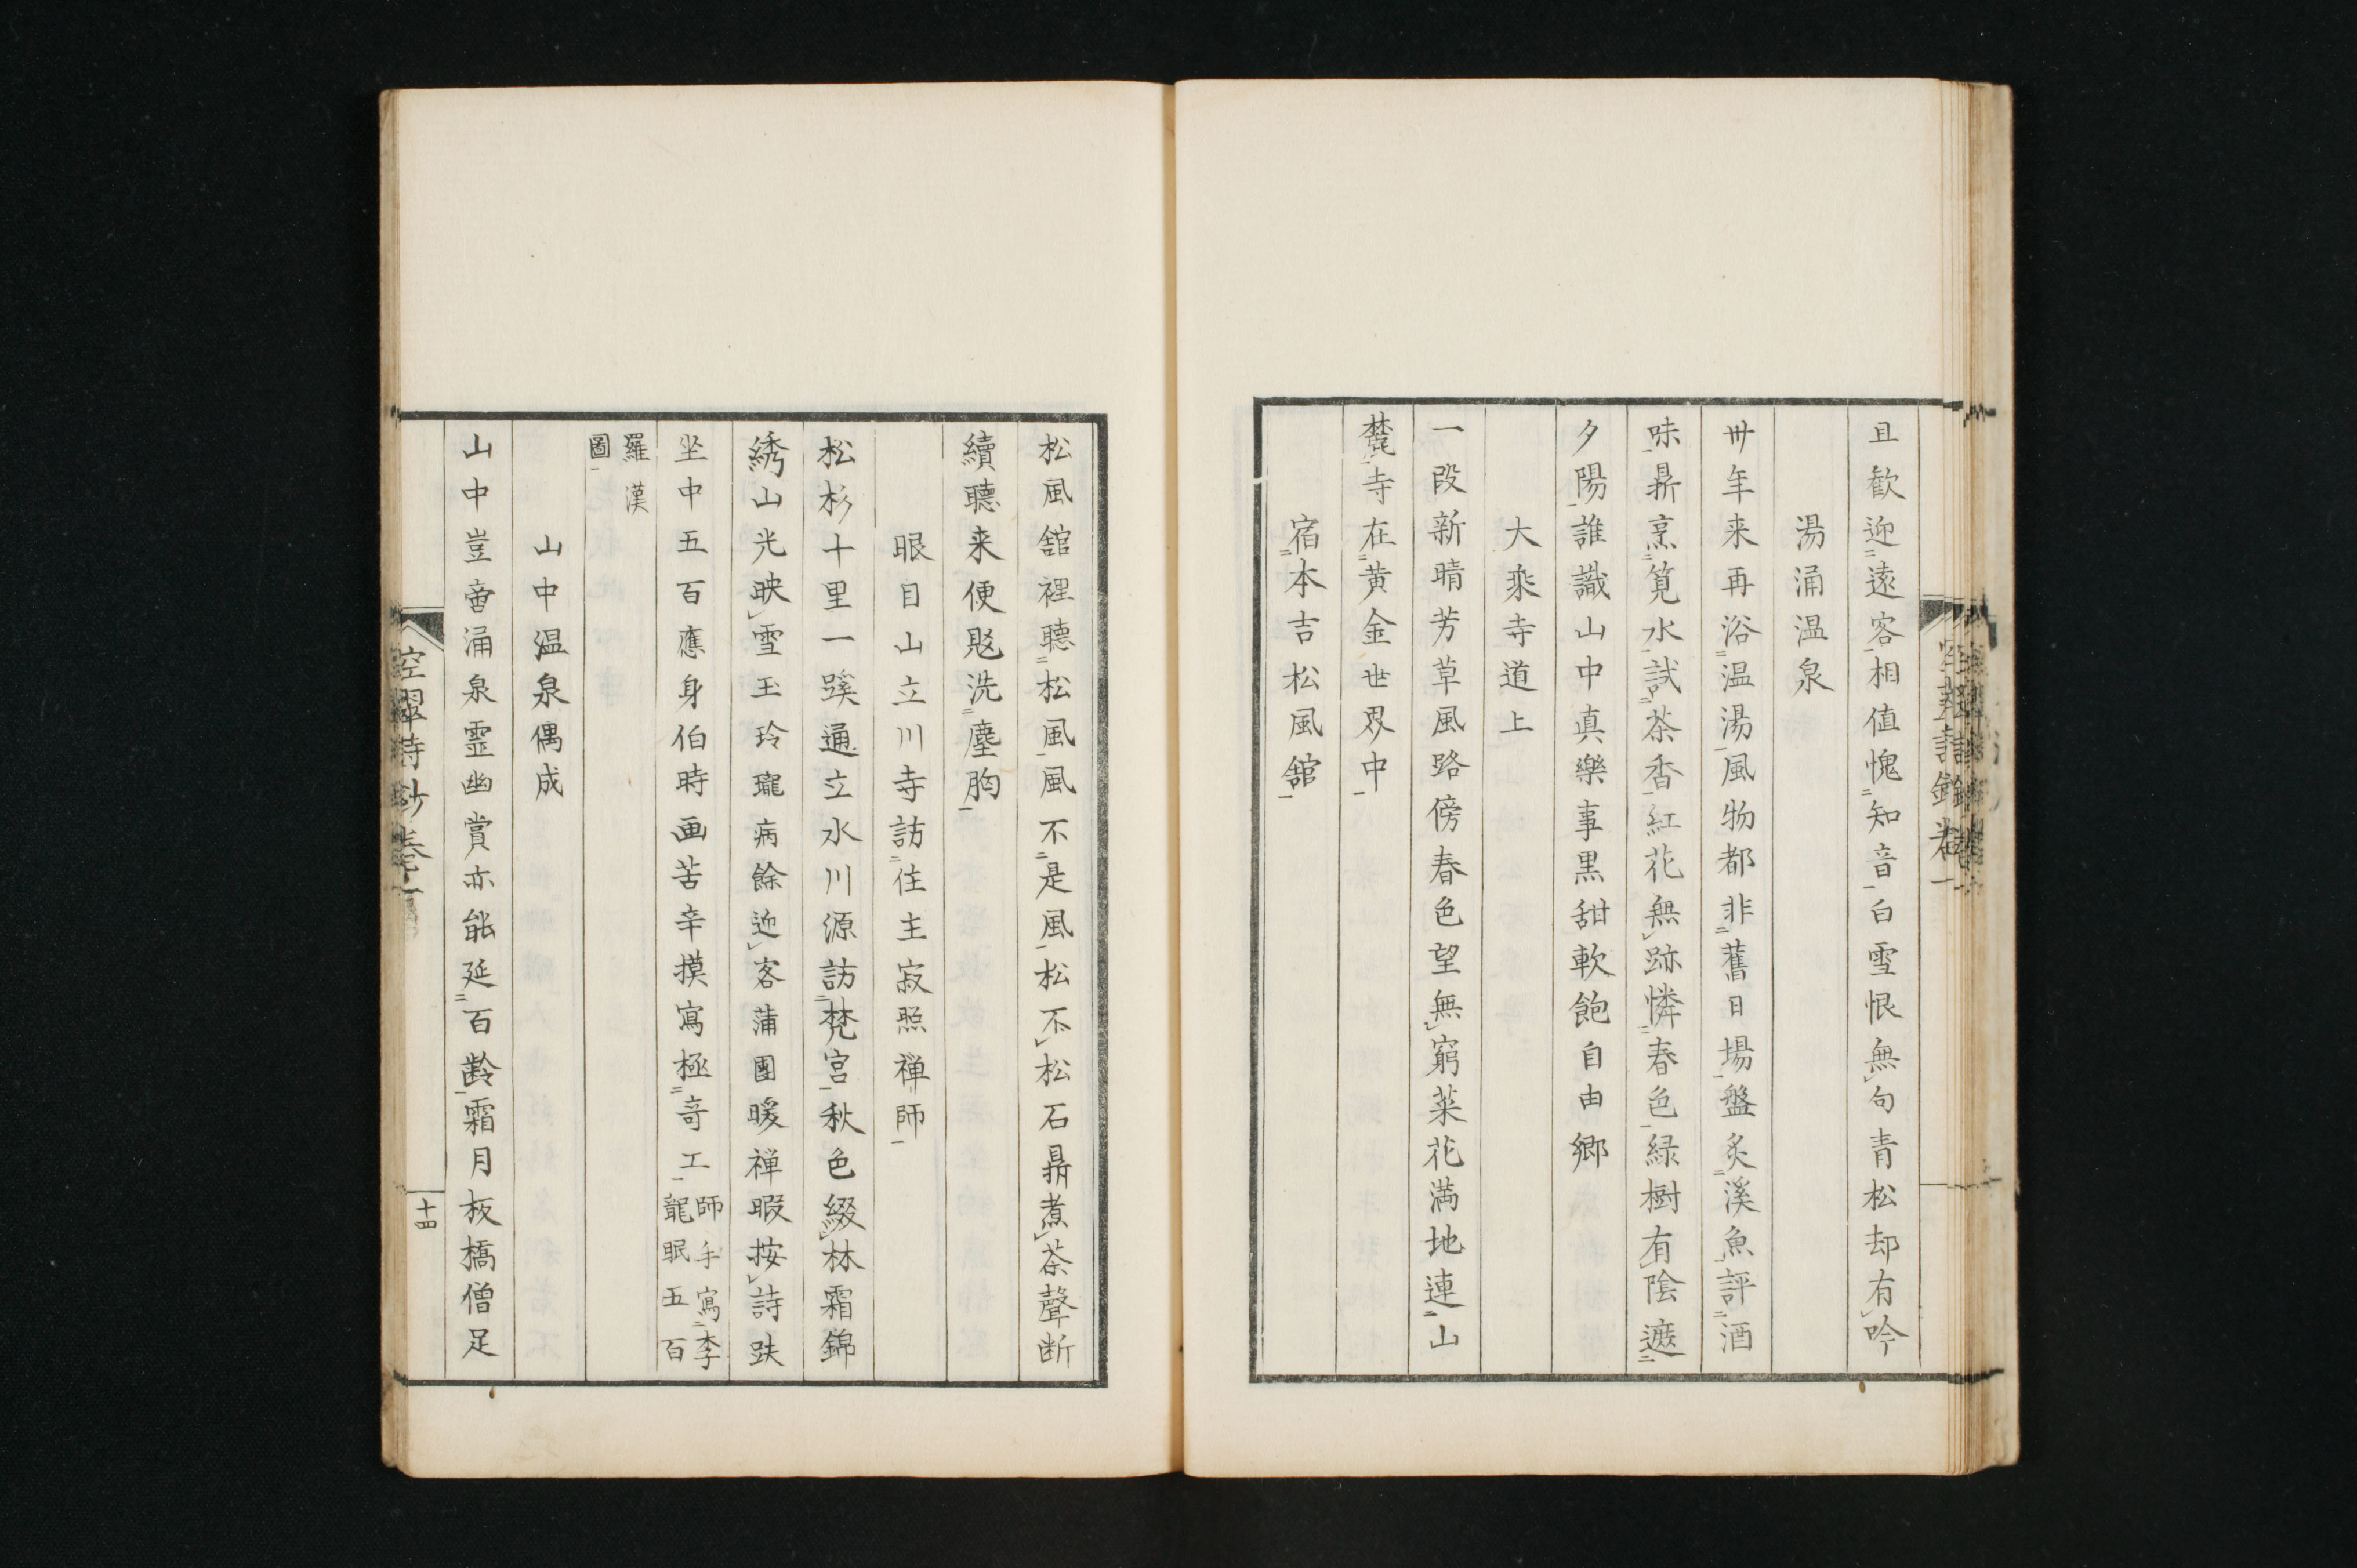 且歓迎遠客相値愧知音白雪恨無句青松却有吟
湯涌温泉
丗年来再浴温湯風物都非舊日場盤炙溪魚評酒
味鼎烹筧水試茶香紅花無跡憐春色緑樹有陰遮
夕陽誰識山中真樂事黒甜軟飽自由郷
大乗寺道上
一段新晴芳草風路傍春色望無窮菜花満地連山
麓寺在黄金世界中
宿本吉松風舘
松風舘裡聽松風風不是風松不松石鼎煮茶聲断
續聽来便覐洗塵胸
眼目山立川寺訪住主寂照禅師
松杉十里一蹊通立水川源訪梵宮秋色綴林霜錦
綉山光映雪玉玲瓏病餘迎客蒲團暖禅暇按詩趺
坐中五百應身伯時画苦辛摸寫極竒工
師手寫李
龍眠五百
羅漢
圖
山中温泉偶成
山中豈啻涌泉霊幽賞亦能延百齢霜月板橋僧足
空翠詩鈔巻一
十四